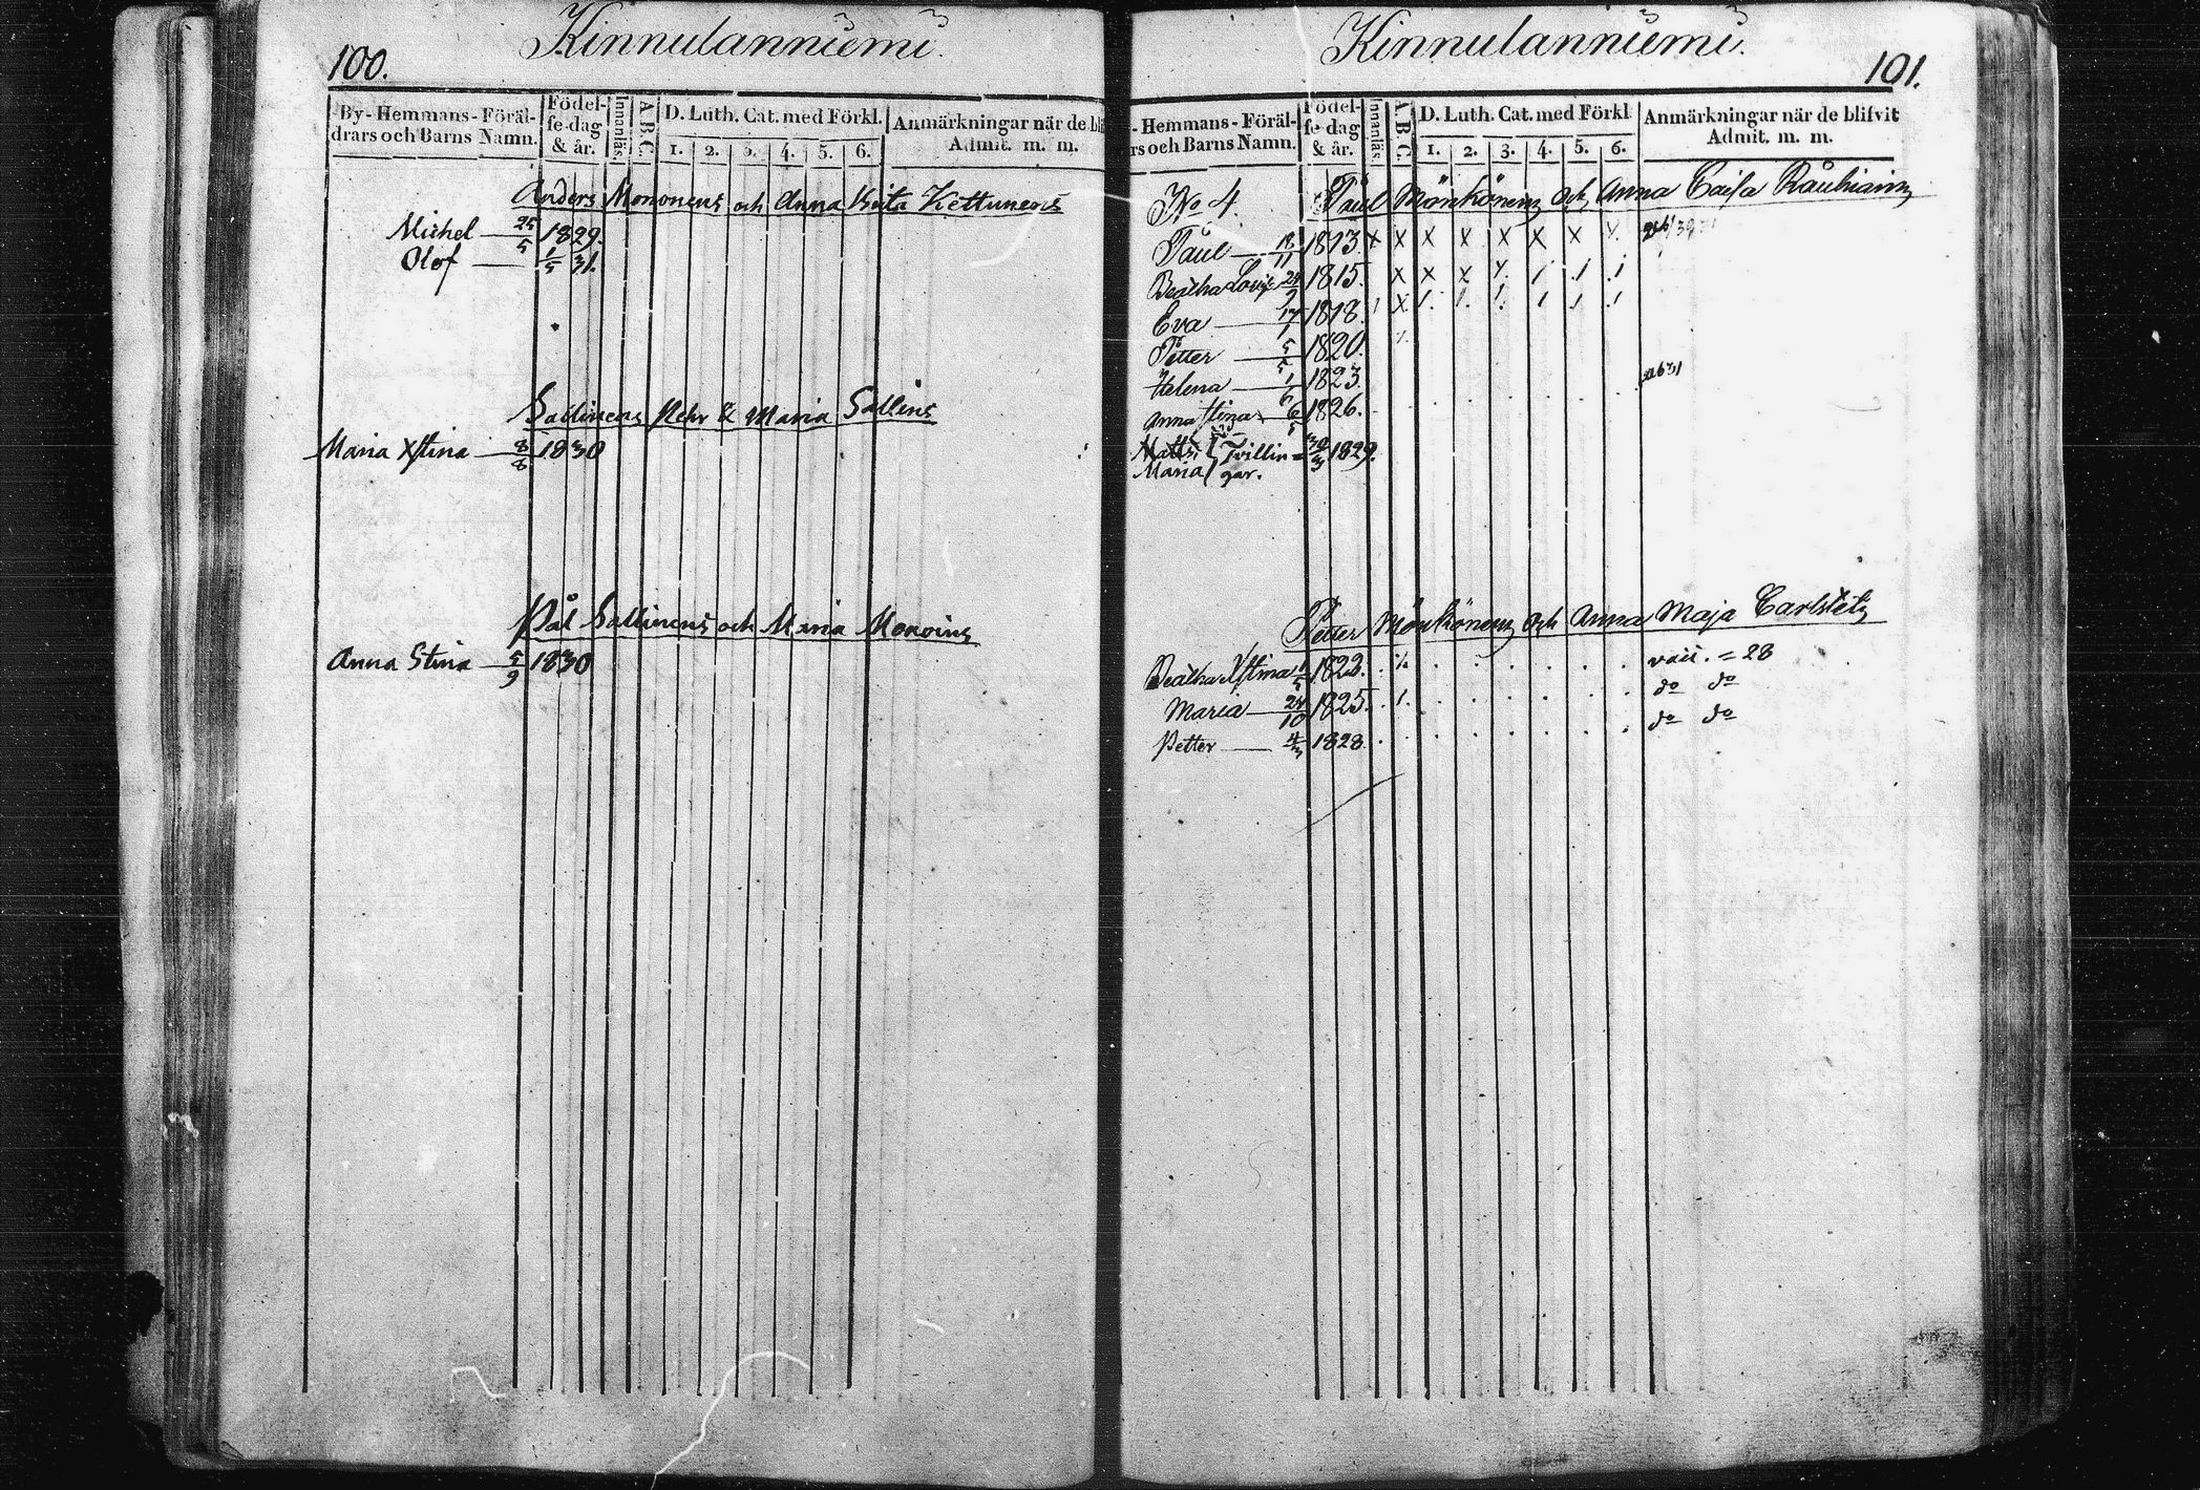 100.
Kinnulanniemi.
By-Hemmans-Föräl-
drars och Barns Namn.
Födel-
se-dag
& år.
Innanläs.
A.B.C.
D. Luth. Cat. med Förkl.
1. 2. 3. 4. 5. 6.
Anmärkningar når de bli
Admit. m. m.
Anders Mononens och Anna Brita Kettunens
Michel — 25/5 1829.
Olof — 1/5 31.
Sallinens Pehr & Maria Sallins
Maria Xstina — 8/8 1830
Pål Sallinens och Maria Monoins
Anna Stina — 5/9 1830
Kinnulanniemi.
101.
-Hemmans-Föräl-
rs och Barns Namn.
Födel-
se-dag
& år.
Innanläs.
A.B.C.
D. Luth. Cat. med Förkl
1. 2. 3. 4. 5. 6.
Anmärkningar når de blifvit
Admit. m. m.
No 4. Påul Mönkönens och Anna Caisa
Påul — 18/11 1813. x x x x x x x
Beatha Lovisa 24/9 1815. x x x
Eva — 17/1 1818.
Petter — 5/5 1820.
Helena — 1/6 1823.
Anna Stina 6/5 1826.
Matts Tvillin= 30/3 1829.
Maria gar.
Petter Mönkönens och Anna Maja Carlstets
Beatha Xstina 1/5 1822. vaii. = 28
Maria — 24/10 1825. do do
Petter — 4/3 1828. do do